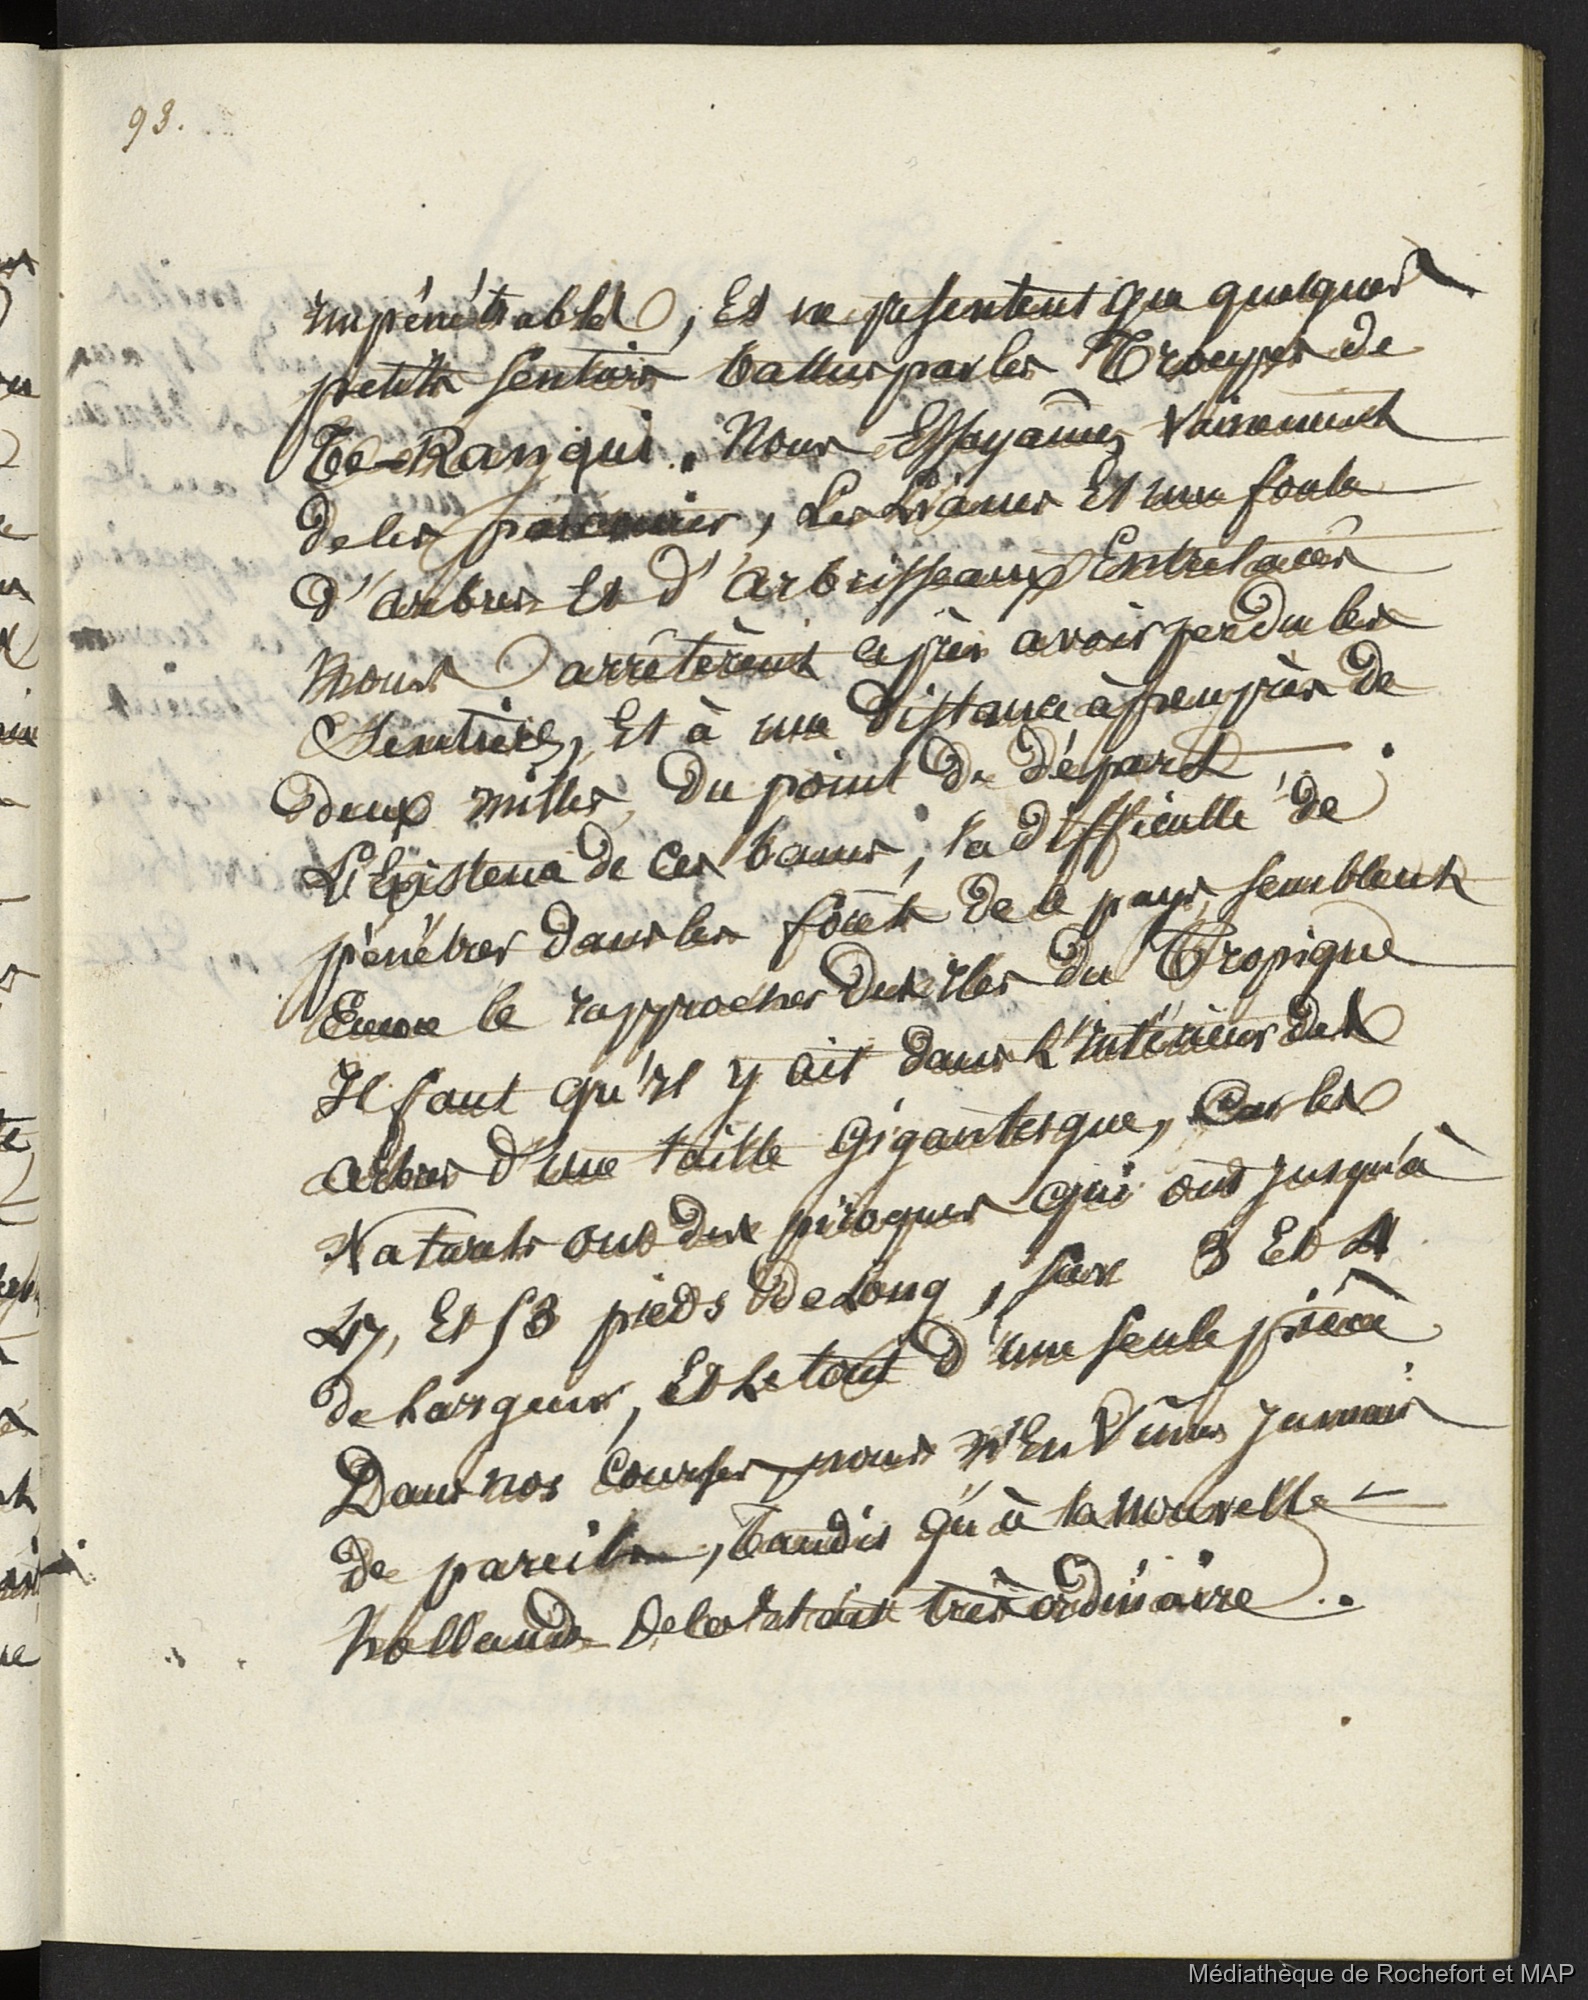 93.
impénétrables, Et ne présentent que quelques
petits sentiers battus par les Troupes de
Te-Rangui. Nous Essayâmes Vainement
de les parcourir, Les Lianes Et une foule
d'arbres Et d'arbrisseaux Entrelacés
nous arrêtèrent après avoir perdu les
Sentiers, Et à une distance à peu près de
deux milles du point de départ.
L'Existence de ces lianes, la difficulté de
pénétrer dans les forêts de ce pays, semblent
Encore le rapprocher des iles du Tropique
Il faut qu'il y ait dans L'intérieur des
arbres d'une taille gigantesque, Car les
Naturels ont des pirogues qui ont jusqu'à
47, Et 53 pieds de Long, sur 3 Et 4
de Largeur, Et Le tout d'une seule pièce
Dans nos courses, nous n'En Vîmes jamais
de pareils, tandis qu'à la nouvelle
hollande cela était très ordinaire..
Médiathèque de Rochefort et MAP